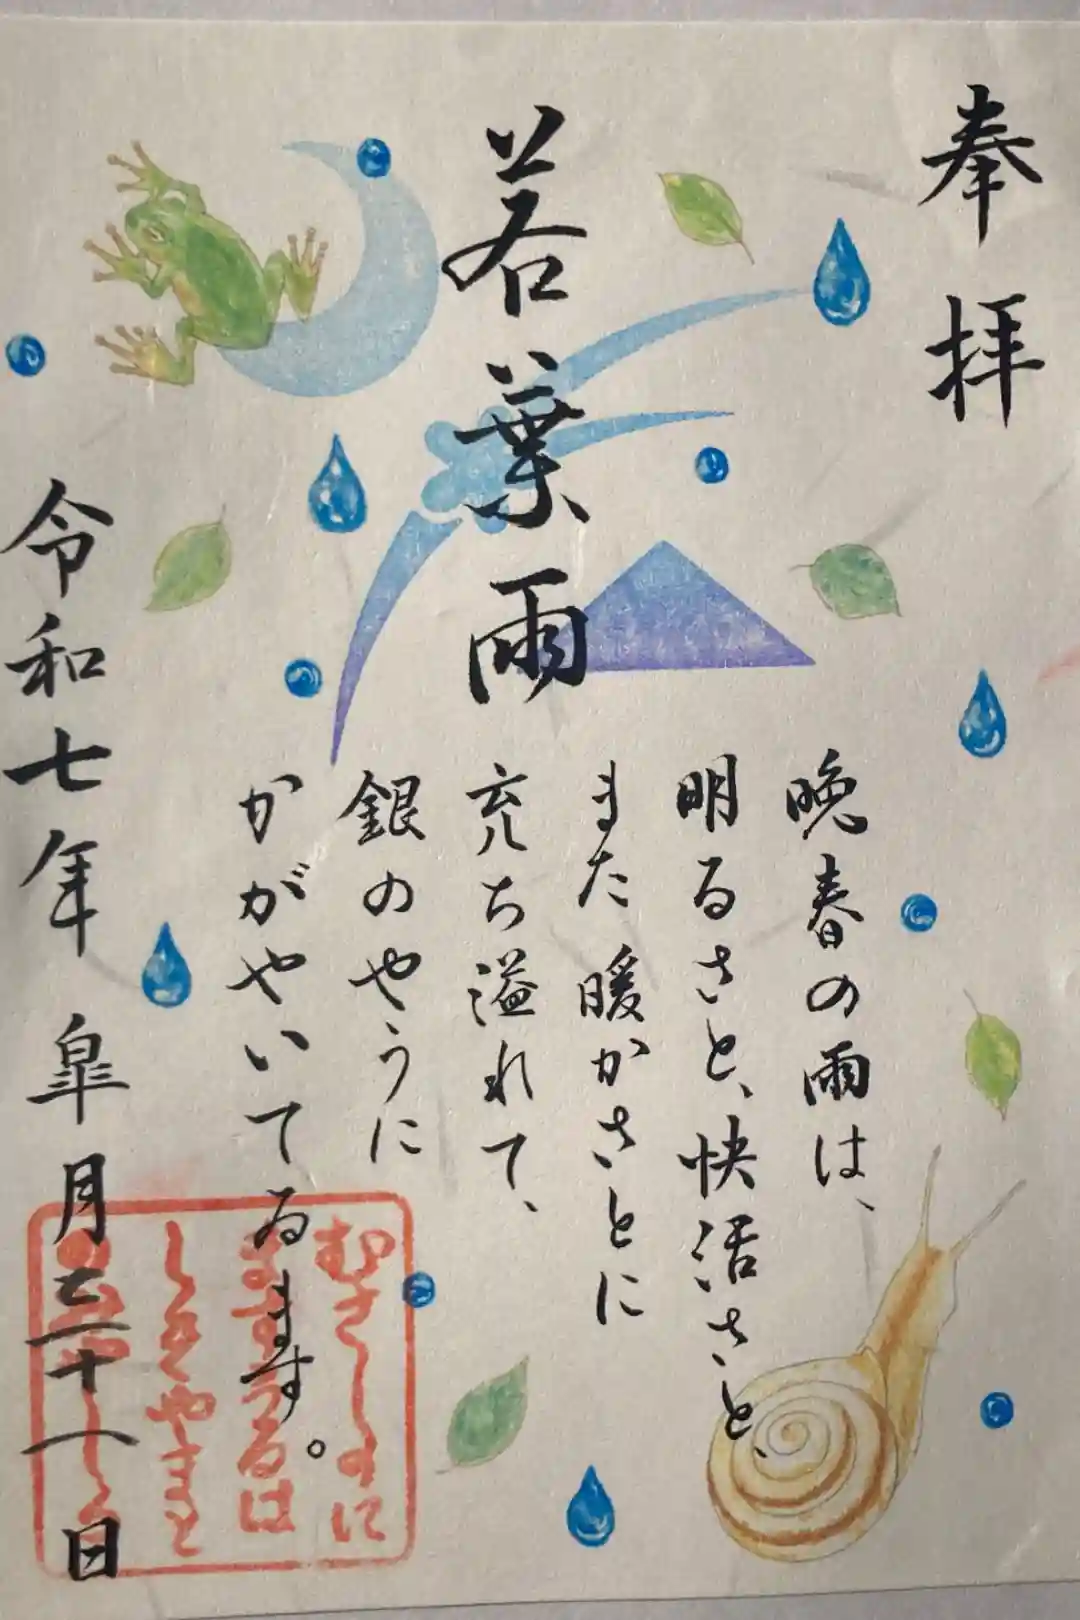 奉拝
若葉雨
晩春の雨は、
明るさと、快活さと、
また暖かさとに
充ち溢れて、
銀のやうに
かがやいてゐます。
令和七年皐月三十一日
むさしのに